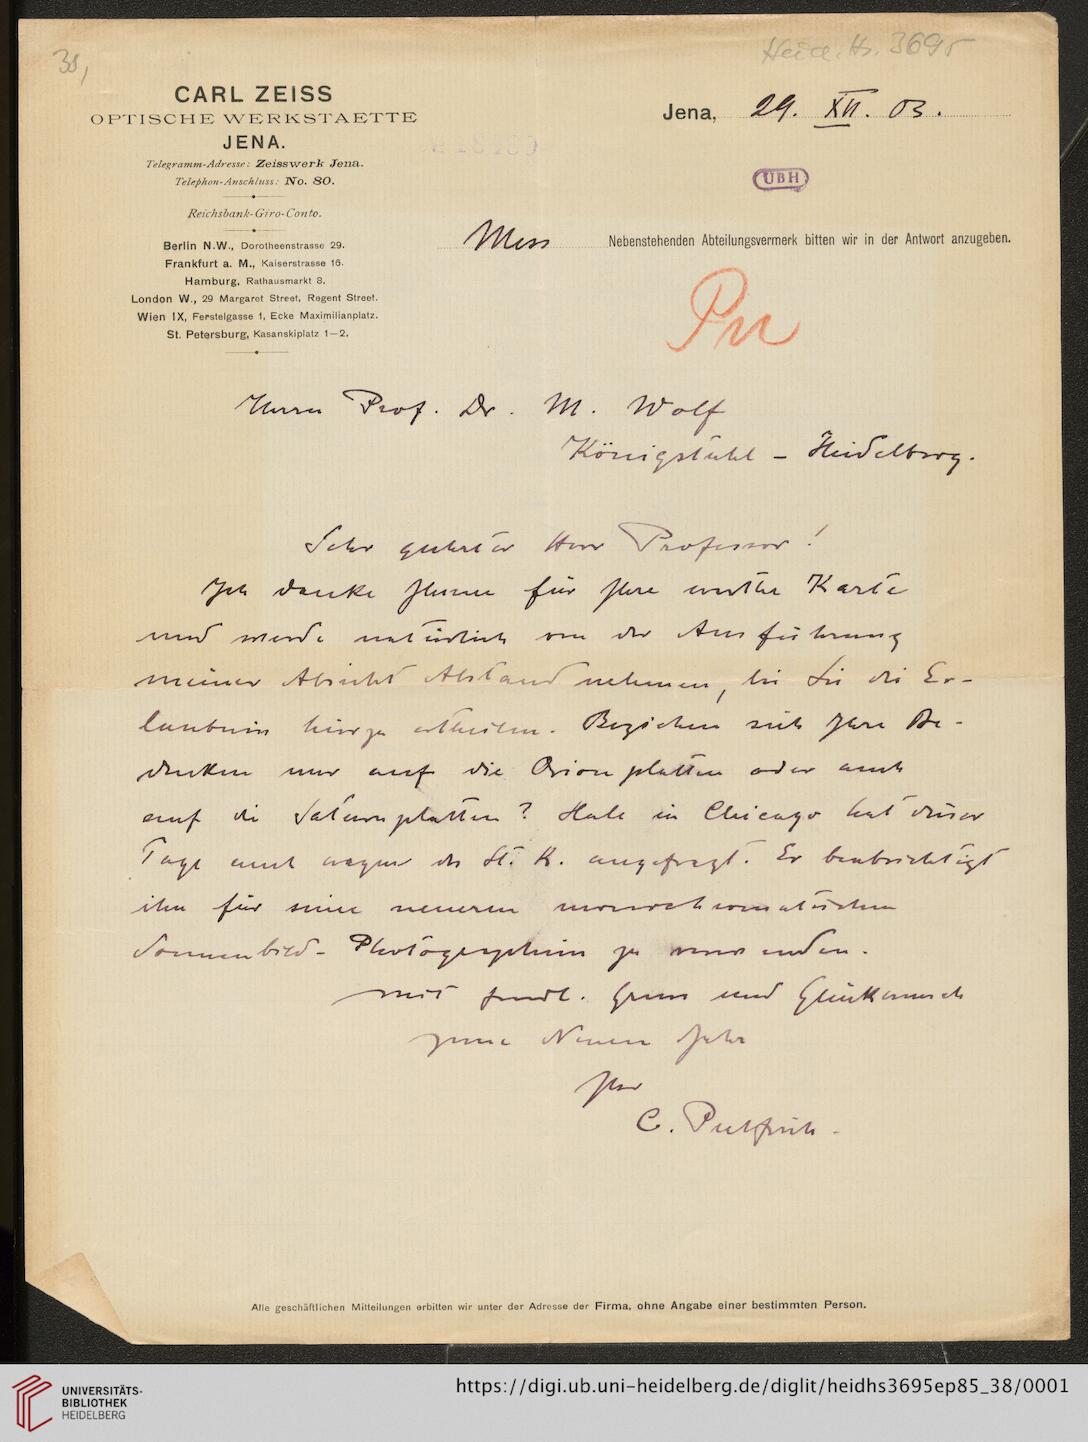 38,
Heid. Hs. 3695
CARL ZEISS
OPTISCHE WERKSTAETTE
JENA.
Telegramm-Adresse: Zeisswerk Jena.
Telephon-Anschluss: No. 80.
Reichsbank-Giro-Conto.
Berlin N.W., Dorotheenstrasse 29.
Frankfurt a. M., Kaiserstrasse 16.
Hamburg, Rathausmarkt 8.
London W., 29 Margaret Street, Regent Street.
Wien IX, Ferstelgasse 1, Ecke Maximilianplatz.
St. Petersburg, Kasanskiplatz 1–2.
Jena, 29. XII. 03.
UBH
Mess Nebenstehenden Abteilungsvermerk bitten wir in der Antwort anzugeben.
Pu
Herrn Prof. Dr. M. Wolf
Königstuhl – Heidelberg.
Sehr geehrter Herr Professor!
Ich danke Ihnen für Ihre werthe Karte
und werde natürlich von der Ausführung
meiner Absicht Abstand nehmen, bis Sie die Er-
laubnis hierzu ertheilen. Beziehen sich Ihre Be-
denken nur auf die Orionplatten oder auch
auf die Saturnplatten? Hale in Chicago hat dieser
Tage auch wegen des St. K. angefragt. Er beabsichtigt
ihn für seine neueren monochromatischen
Sonnenbild-Photographien zu verwenden.
Mit frndl. Gruss und Glückwunsch
zum Neuen Jahr
Ihr
C. Pulfrich.
Alle geschäftlichen Mitteilungen erbitten wir unter der Adresse der Firma, ohne Angabe einer bestimmten Person.
UNIVERSITÄTS-
BIBLIOTHEK
HEIDELBERG
https://digi.ub.uni-heidelberg.de/diglit/heidhs3695ep85_38/0001